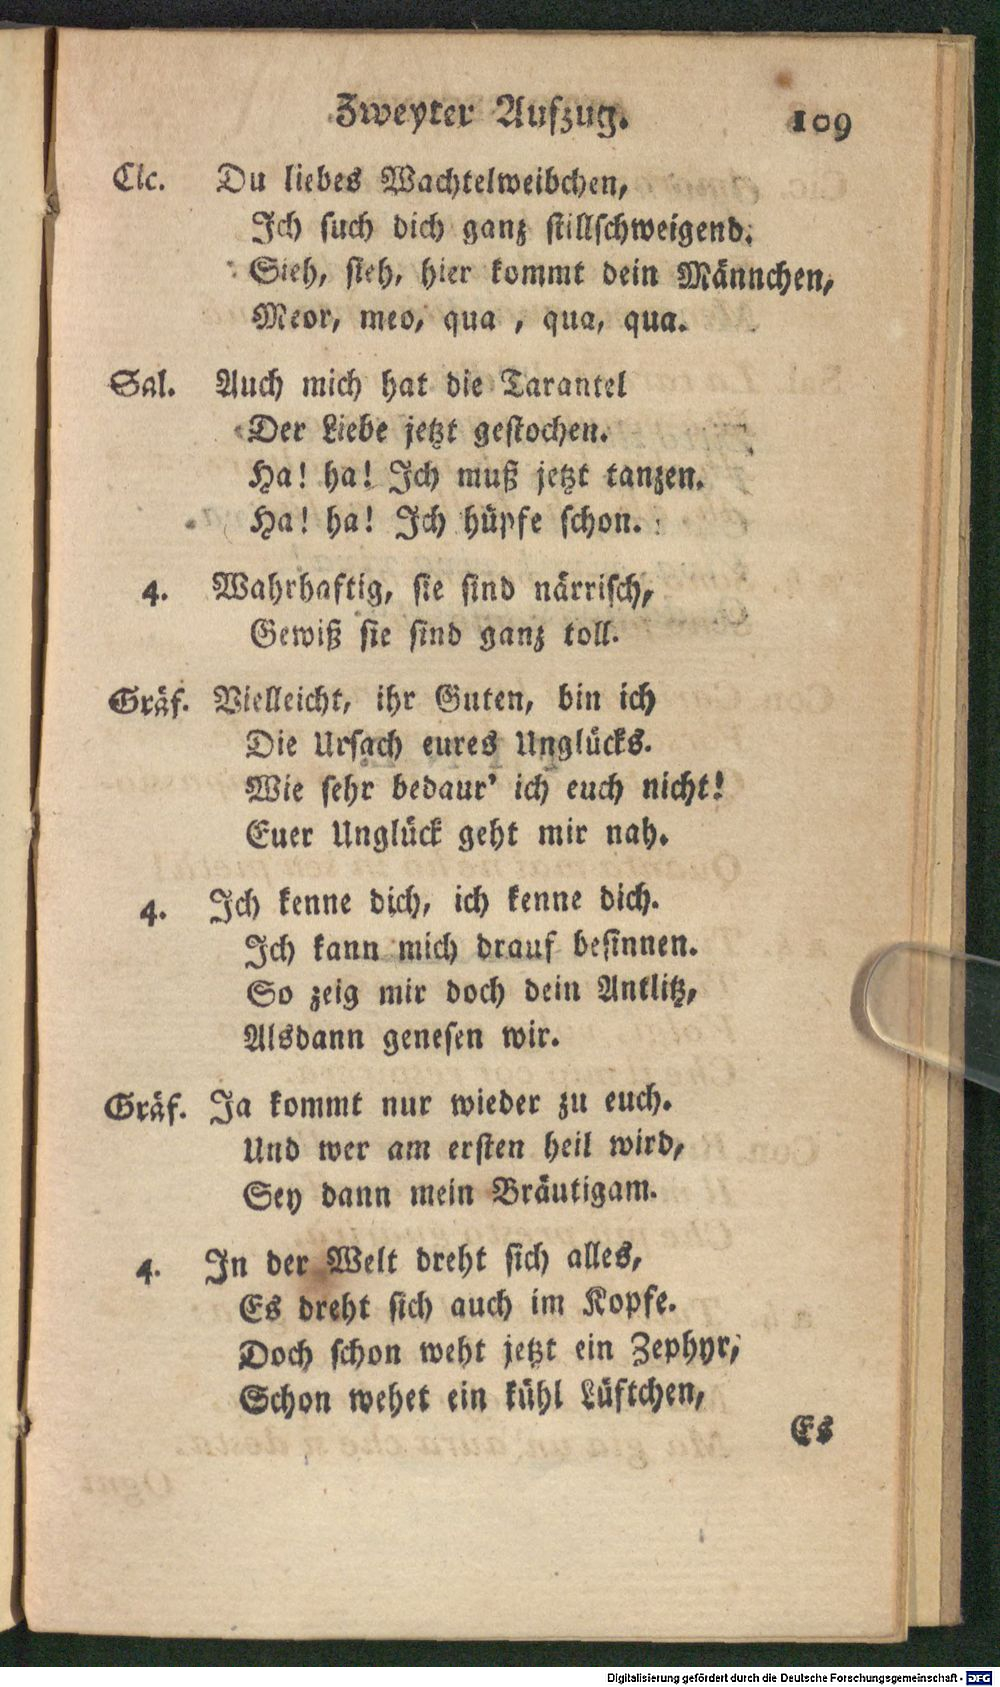 Zweyter Aufzug. 109
Cic. Du liebes Wachtelweibchen,
Ich such dich ganz stillschweigend.
Sieh, sieh, hier kommt dein Männchen,
Meor, meo, qua , qua, qua.
Sal. Auch mich hat die Tarantel
Der Liebe jetzt gestochen.
Ha! ha! Ich muß jetzt tanzen.
Ha! ha! Ich hüpfe schon.
4. Wahrhaftig, sie sind närrisch,
Gewiß sie sind ganz toll.
Gräf. Vielleicht, ihr Guten, bin ich
Die Ursach eures Unglücks.
Wie sehr bedaur' ich euch nicht!
Euer Unglück geht mir nah.
4. Ich kenne dich, ich kenne dich.
Ich kann mich drauf besinnen.
So zeig mir doch dein Antlitz,
Alsdann genesen wir.
Gräf. Ja kommt nur wieder zu euch.
Und wer am ersten heil wird,
Sey dann mein Bräutigam.
4. In der Welt dreht sich alles,
Es dreht sich auch im Kopfe.
Doch schon weht jetzt ein Zephyr,
Schon wehet ein kühl Lüftchen,
Es
Digitalisierung gefördert durch die Deutsche Forschungsgemeinschaft - DFG